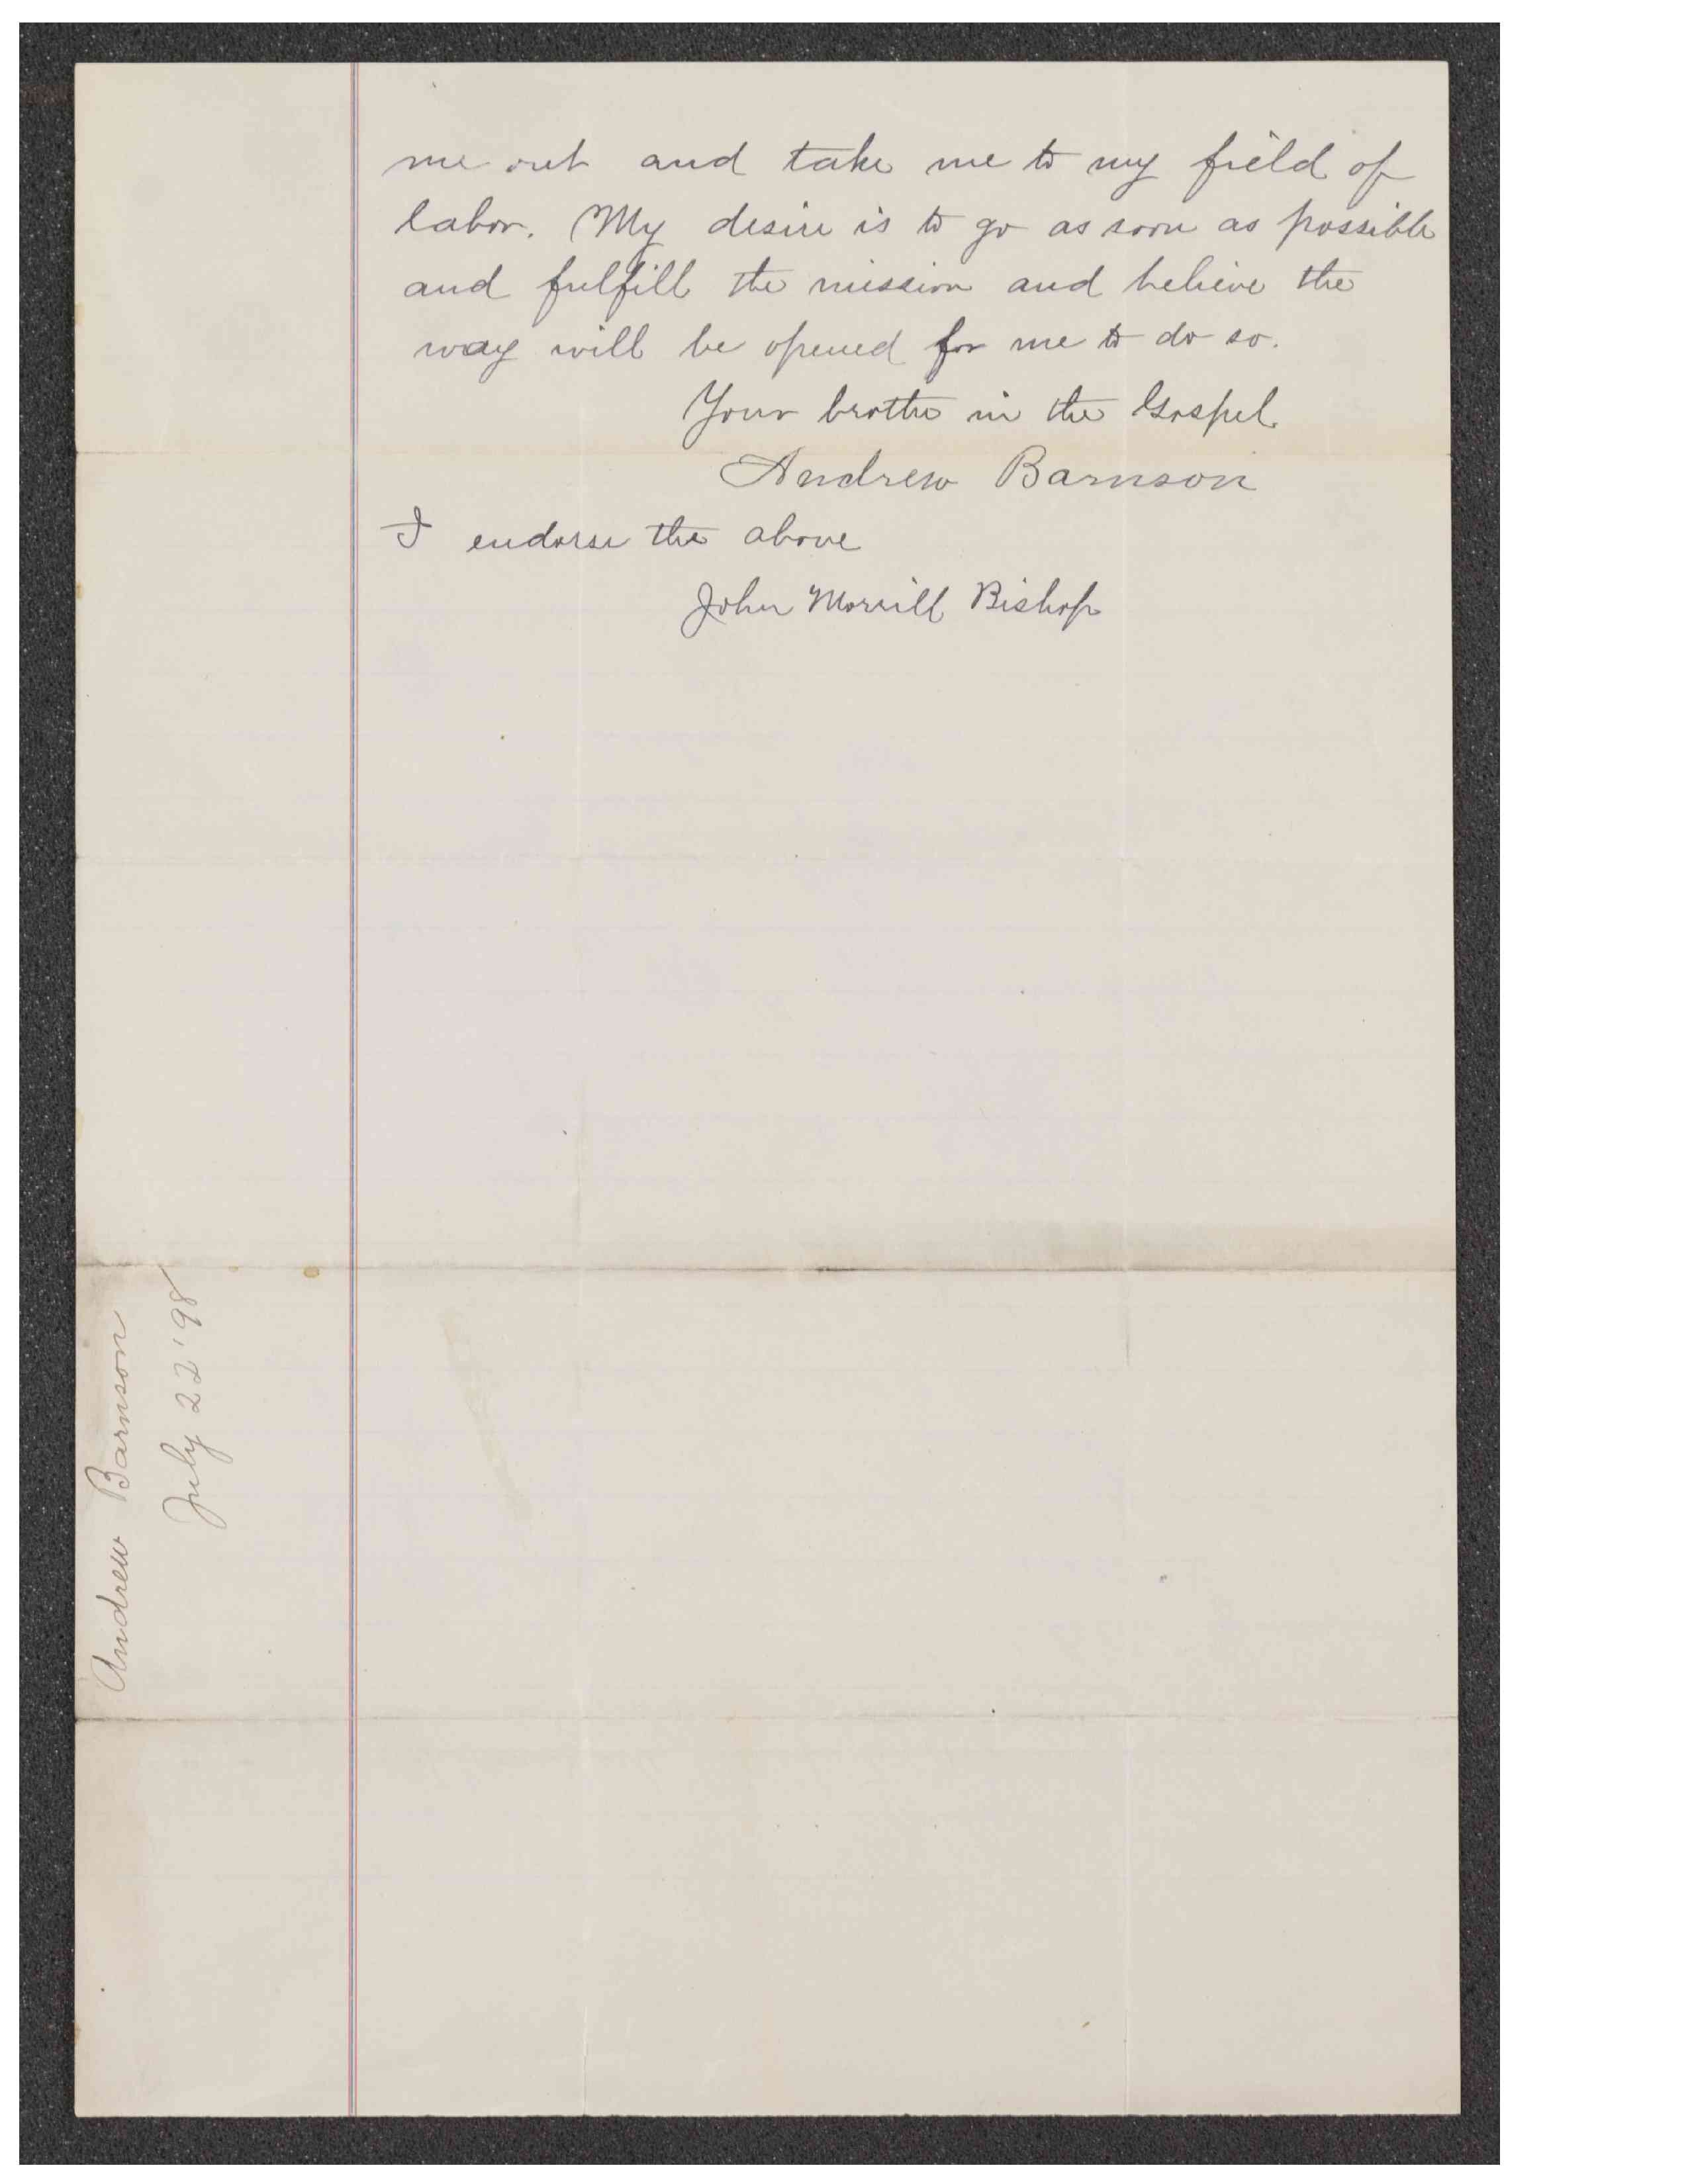 me out and take me to my field of
labor. My desire is to go as soon as possible
and fulfill the mission and believe the
way will be opened for me to do so.
Your brother in the Gospel.
Andrew Barnson
I endorse the above
John Morrill Bishop
Andrew Barnson
July 22 '98